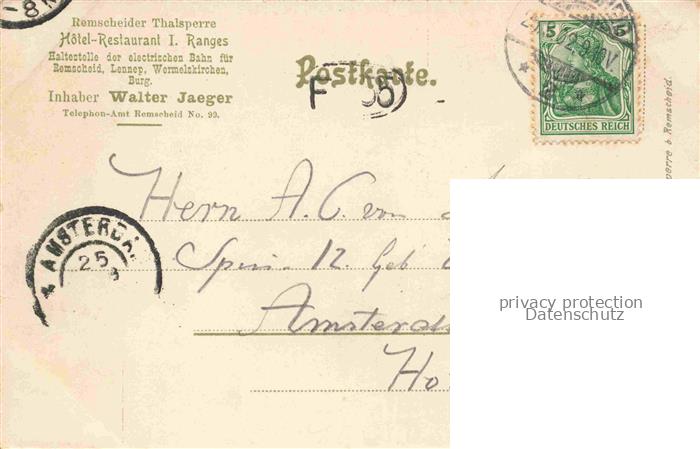 Remscheider Thalsperre
Hôtel-Restaurant I. Ranges
Haltestelle der electrischen Bahn für
Remscheid, Lennep, Wermelskirchen,
Burg.
Inhaber Walter Jaeger
Telephon-Amt Remscheid No. 99.
Postkarte.
F
5 5
DEUTSCHES REICH
AMSTERDA
25
Herrn A. C. von
12
Amsterd
Ho
privacy protection
Datenschutz
perre b Remscheid.